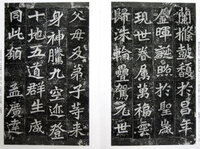 蘭條鼓馥於昌年
金暉誕照於聖歲
現世眷屬萬福雲
歸洙輪疊駕元世
父母及弟子等來
身神騰九空迹登
十地五道群生咸
同此願 孟廣達